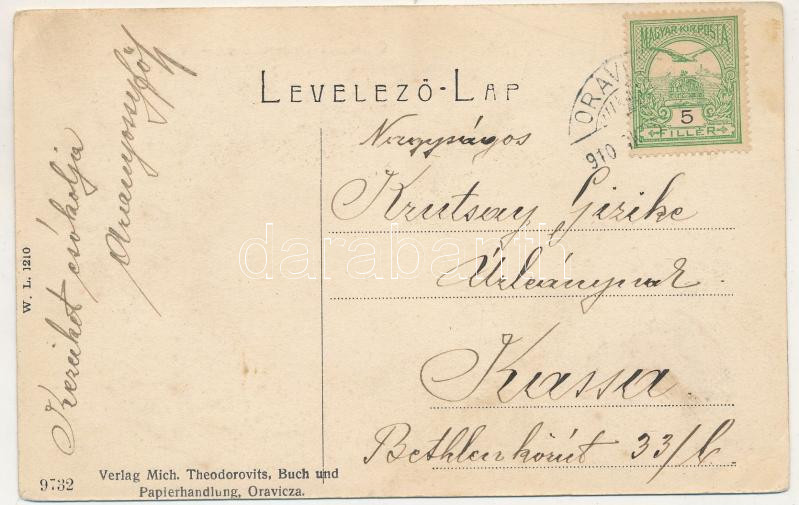 LEVELEZŐ-LAP
MAGYAR·KIR·POSTA
5
FILLÉR
ORAVI
910
Nagyságos
Krutsay Gizike
Úrleánynak
Kassa.
Bethlen körút 33/b.
Kezeiket csókolja
W. L. 1210
9732
Verlag Mich. Theodorovits, Buch und
Papierhandlung, Oravicza.
darabanth